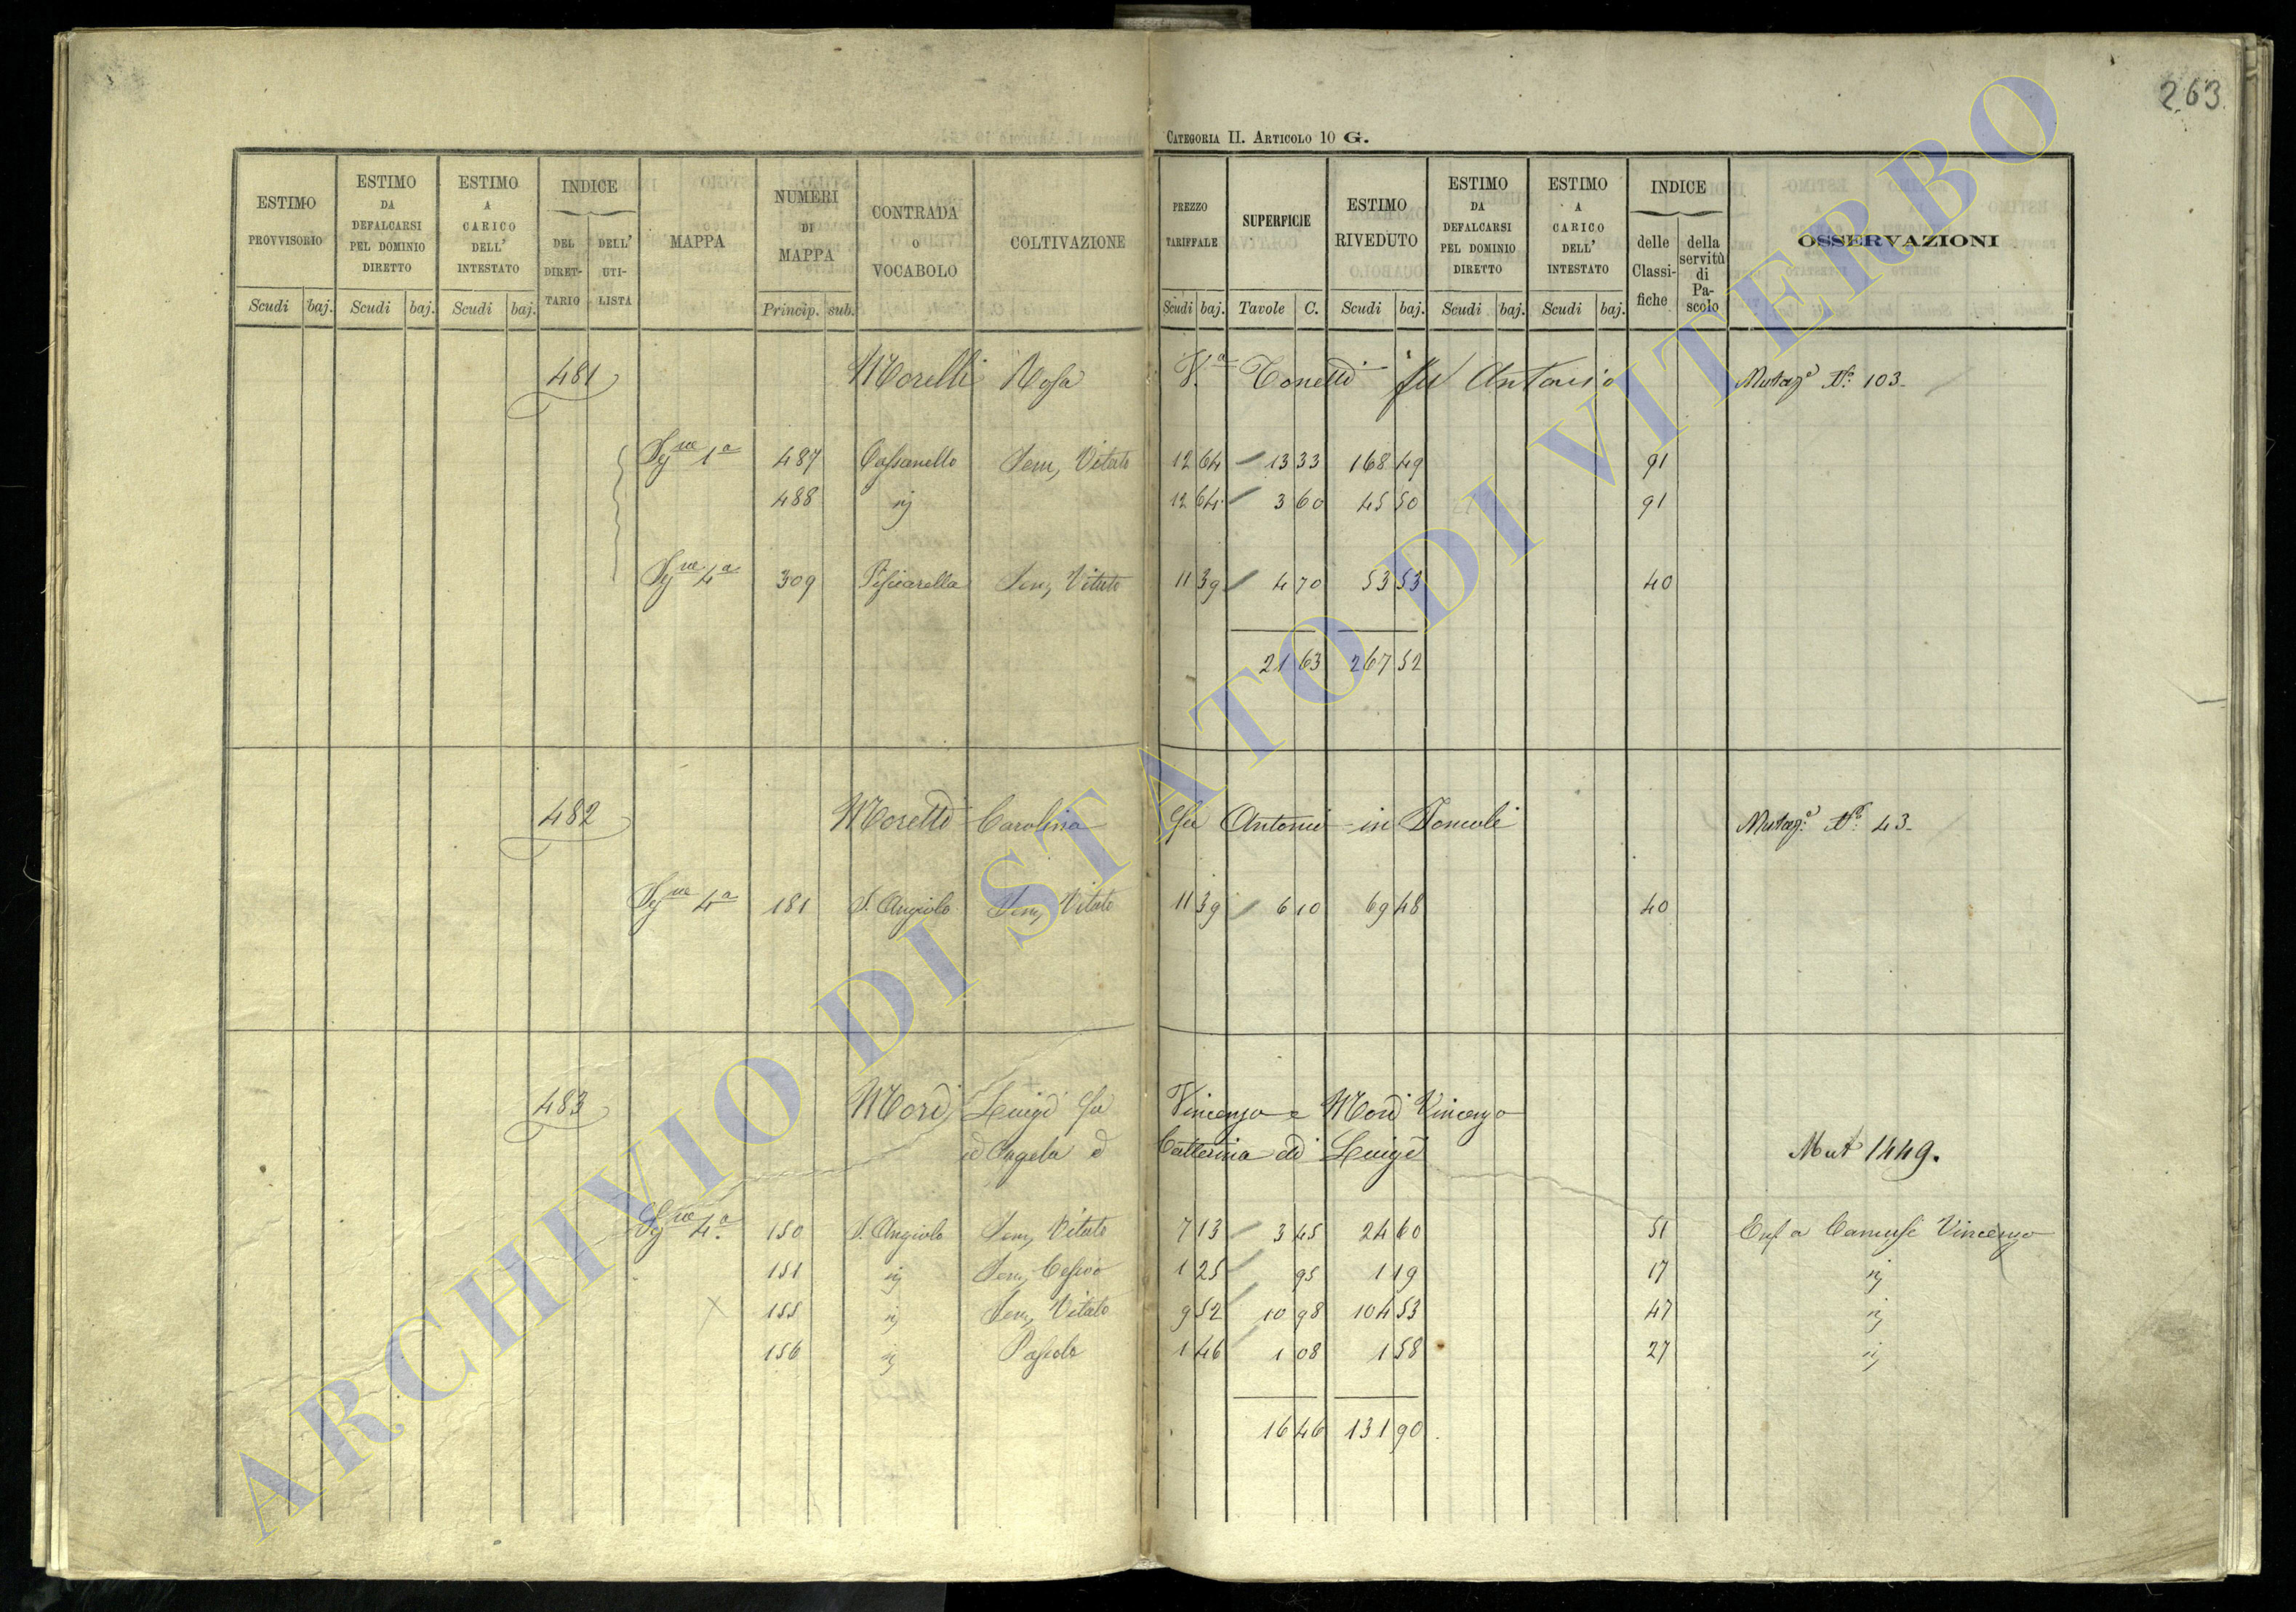 263
CATEGORIA II. ARTICOLO 10 G.
ESTIMO PROVVISORIO Scudi baj.
ESTIMO DA DEFALCARSI PEL DOMINIO DIRETTO Scudi baj.
ESTIMO A CARICO DELL' INTESTATO Scudi baj.
INDICE DEL DIRET-TARIO DELL' UTI-LISTA
MAPPA
NUMERI DI MAPPA Princip. sub.
CONTRADA o VOCABOLO
COLTIVAZIONE
PREZZO TARIFFALE Scudi baj.
SUPERFICIE Tavole C.
ESTIMO RIVEDUTO Scudi baj.
ESTIMO DA DEFALCARSI PEL DOMINIO DIRETTO Scudi baj.
ESTIMO A CARICO DELL' INTESTATO Scudi baj.
INDICE delle Classi-fiche della servitù di Pa-scolo
OSSERVAZIONI
481 Morelli Rosa Va Tonetti fu Antonio N.o 103
1a 487 Sem, Vitato 12 64 13 33 168 49 91
488 12 64 3 60 45 50 91
4a 309 Sem, Vitato 11 39 4 70 53 53 40
21 63 267 52
482 Moretti Carolina fu Antonio in N.o 43
4a 181 S. Angiolo Sem, Vitato 11 39 6 10 69 48 40
483 Mori Luigi fu Vincenzo e Mori Vincenzo
ed Angela e Catterina di Luigi Mut 1449.
4a 150 S. Angiolo Sem, Vitato 7 13 3 45 24 60 51 Vincenzo
151 Sem, 1 25 95 1 19 17
155 Sem, Vitato 9 52 10 98 104 53 47
156 Pascolo 1 46 1 08 1 58 27
16 46 131 90
ARCHIVIO DI STATO DI VITERBO